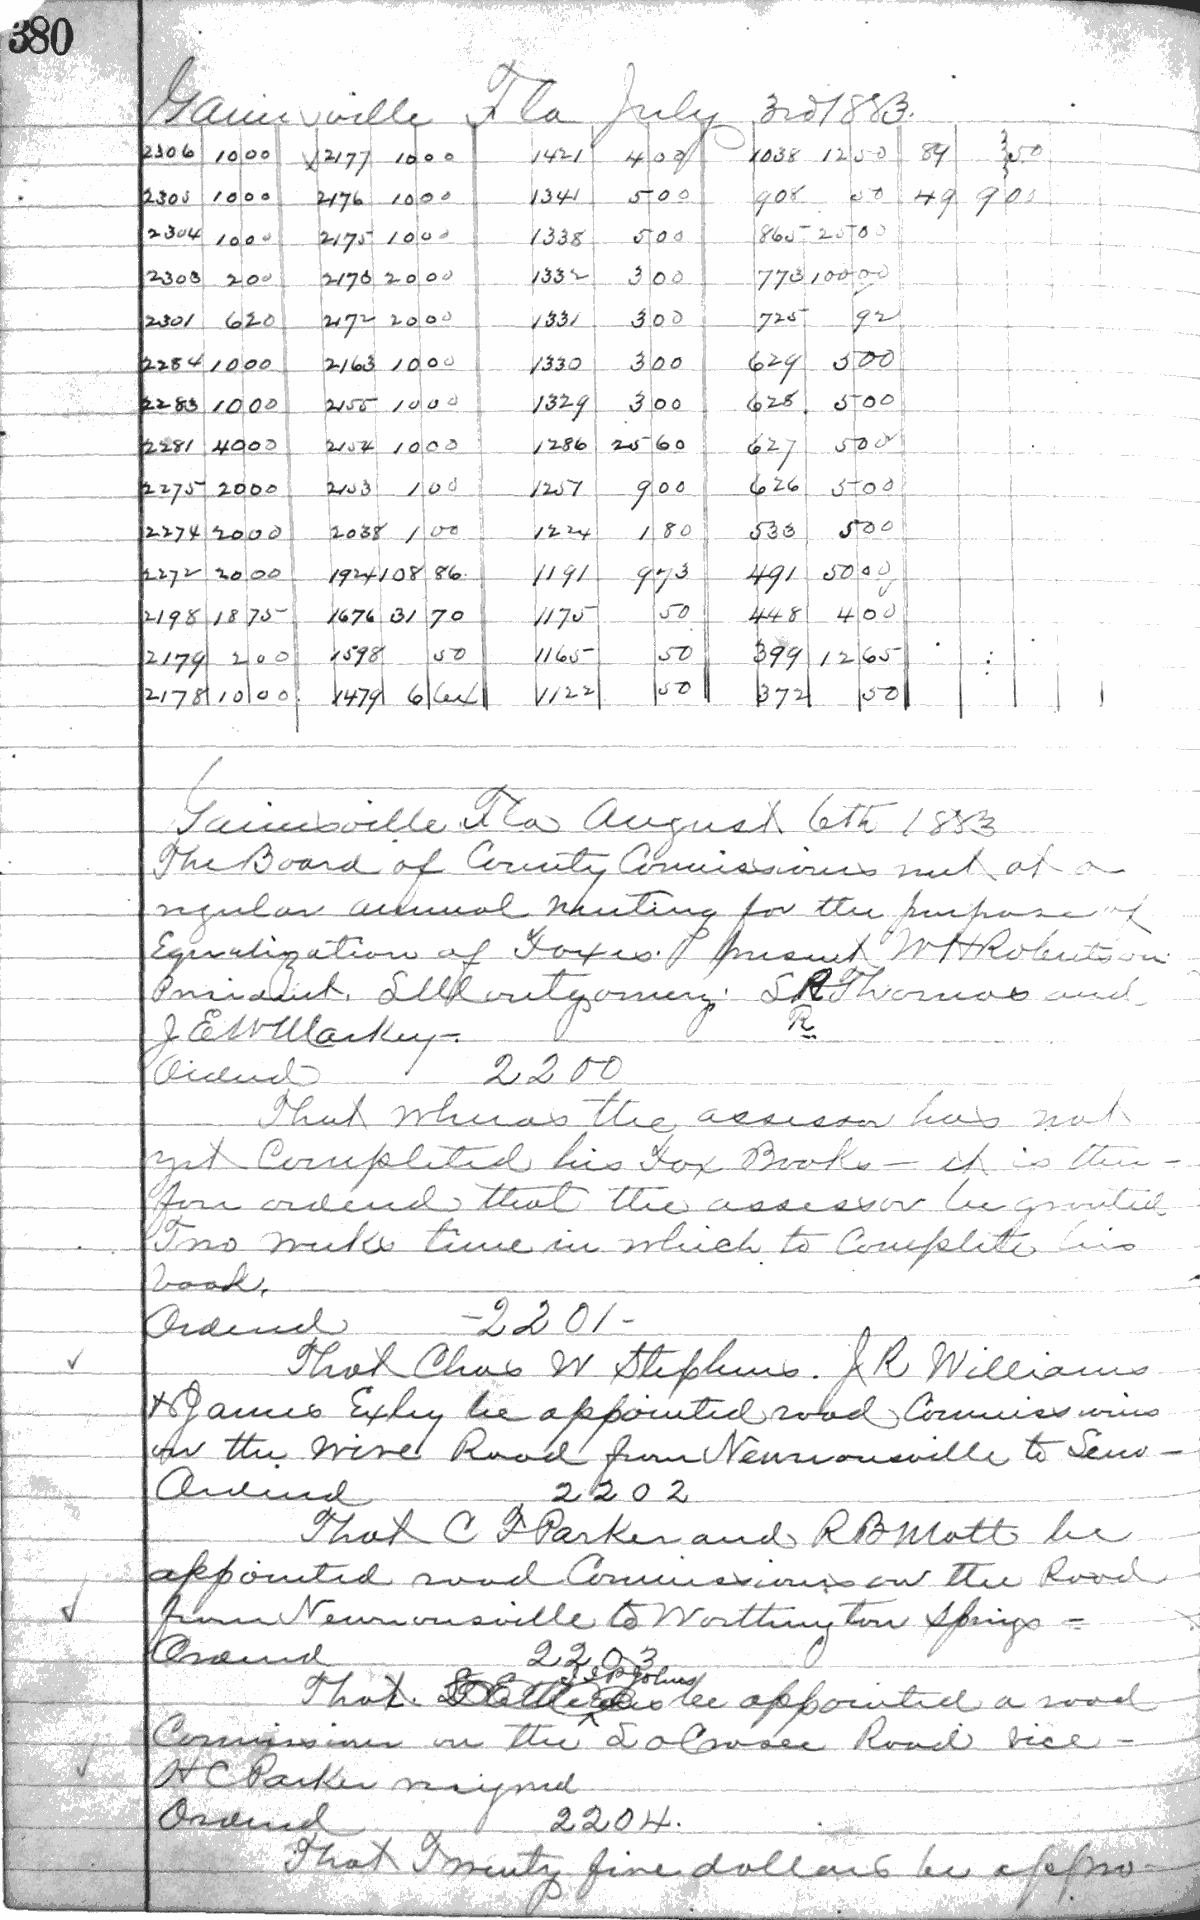 380
Gainesville Fla July 3rd 1883.
2306 1000 2177 1000 1421 400 1038 1250 89 50
2305 1000 2176 1000 1341 500 908 50 49 900
2304 1000 2175 1000 1338 500 865 2500
2303 200 2173 2000 1332 300 773 10000
2301 620 2172 2000 1331 300 725 92
2284 1000 2163 1000 1330 300 629 500
2283 1000 2155 1000 1329 300 628 500
2281 4000 2154 1000 1286 2560 627 500
2275 2000 2153 100 1257 900 626 500
2274 2000 2038 100 1224 180 533 500
2272 2000 1924 108 86 1191 973 491 5000
2198 1875 1676 31 70 1175 50 448 400
2179 200 1598 50 1165 50 399 1265
2178 1000 1479 6 1122 50 372 50
Gainesville Fla August 6th 1883
The Board of County Commissioners met at a
regular annual meeting for the purpose of
Equalization of Taxes. present W H Robertson
President. S Montgomery. S R Thomas and
R
J E W Markey -.
Ordered 2200
That whereas the assessor has not
yet Completed his Tax Books - it is there -
fore ordered that the assessor be granted
Two weeks time in which to Complete his
book.
Ordered -2201-
That Chas W Stephens. J R Williams
& James Exley be appointed road Commissioners
on the Wire Road from Newnansville to
Ordered 2202
That C F Parker and R B Mott be
appointed road Commissioners on the Road
from Newnansville to Worthington Springs =
Ordered 2203
Johns
That be appointed a road
Commissioner on the LaCrosse Road vice -
H C Parker resigned
Ordered 2204.
That Twenty five dollars be appro-